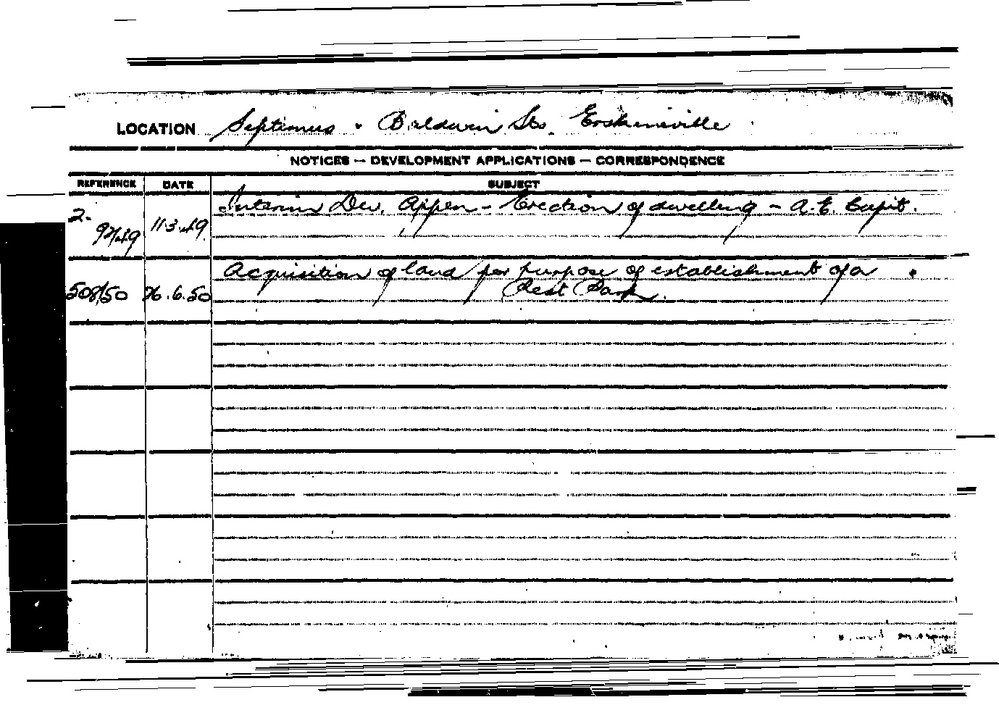 LOCATION Septimus . Baldwin Sts. Erskineville
NOTICES — DEVELOPMENT APPLICATIONS — CORRESPONDENCE
REFERENCE DATE SUBJECT
2. 11.3.49. Interim Dev. Appen - Erection of dwelling - A.E. Cupit.
97/49
Acquisition of land for purpose of establishment of a
508/50 26.6.50 Rest Park.